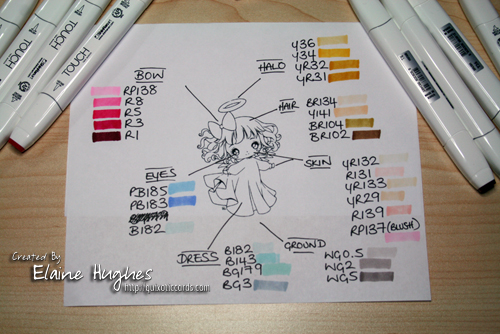 BOW
RP138
R8
R5
R3
R1
HALO
Y36
Y34
YR32
YR31
HAIR
BR134
Y141
BR104
BR102
EYES
PB185
PB183
B182
SKIN
YR132
R131
YR133
YR29
R139
RP137 (BLUSH)
DRESS
B182
B143
BG179
BG3
GROUND
WG0.5
WG2
WG5
Created By
Elaine Hughes
TOUCH
TOUCH
TOUCH